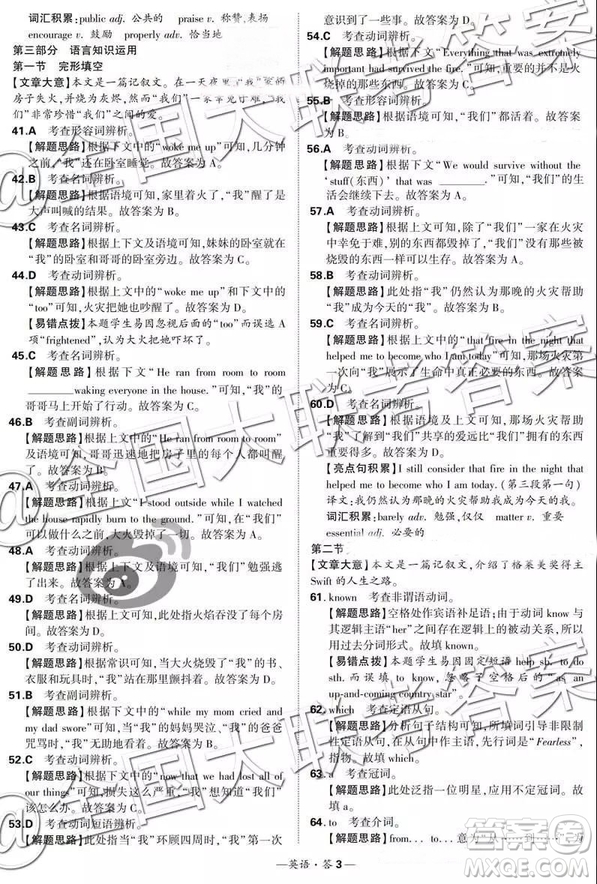 词汇积累:public adj. 公共的 praise v. 称赞,表扬
encourage v. 鼓励 properly adv. 恰当地
第三部分 语言知识运用
第一节 完形填空
【文章大意】本文是一篇记叙文。在一天夜里
房子失火,并彻底烧毁,然而“我们”
非常珍惜“我们”之间的爱。
41.A 考查形容词辨析。
【解题思路】根据下文中的“woke me up”可知,几分钟
之前,“我”还在卧室睡觉。故答案为 A。
42.B 考查名词辨析。
【解题思路】根据语境可知,家里着火了,“我”醒了是
大声叫喊的结果。故答案为 B。
43.C 考查名词辨析。
【解题思路】根据上下文及语境可知,妹妹的卧室就在
“我”的卧室和哥哥的卧室旁边。故答案为 C。
44.D 考查动词辨析。
【解题思路】根据上文中的“woke me up”和下文中的
“too”可知,火灾把她也弄醒了。故答案为 D。
【易错点拨】本题学生易因忽视“too”而误选 A
项“frightened”,认为大火把她吓坏了。
45.C 考查名词辨析。
【解题思路】根据下文中的“He ran from room to room
waking everyone in the house.”可知,“我”的
哥哥马上开始了行动。故答案为 C。
46.B 考查副词辨析。
【解题思路】根据上文中的“He ran from room to room”
及语境可知,哥哥迅速地把房子里的所有人都弄醒
了。故答案为 B。
47.A 考查动词辨析。
【解题思路】根据下文中的“I stood outside while I watched
the house rapidly burn to the ground.”可知,在“我们”
可以做什么之前,大火毁掉了一切。故答案为 A。
48.A 考查副词辨析。
【解题思路】根据上下文及语境可知,“我们”勉强逃
了出来。故答案为 A。
49.D 考查名词辨析。
【解题思路】根据上文可知,此处指火焰吞没了每个房
间。故答案为 D。
50.C 考查名词辨析。
【解题思路】根据常识可知,当大火吞没了“我”的书、
衣服和玩具时,“我”站在那里颤抖着。故答案为 C。
51.C 考查动词辨析。
【解题思路】根据上文中的“while my mom cried and
my dad swore”可知,当“我”的妈妈哭泣、“我”的爸爸
咒骂时,“我”站在那里。故答案为 C。
52.D 考查动词辨析。
【解题思路】根据下文中的“now that we had lost all of
our things”可知,损失这么严重,“我”想知道“我们”
该怎么办。故答案为 D。
53.D 考查动词短语辨析。
【解题思路】此处指当“我”环顾四周时,“我”第一次
意识到了一些事。故答案为 D。
54.C 考查动词辨析。
【解题思路】根据下文中的“Everything that was extremely
important had survived the fire.”可知
。故答案为 C。
55.B 考查形容词辨析。
【解题思路】根据语境可知,“我们”都活着。故答案
为 B。
56.A 考查动词辨析。
【解题思路】根据下文中的“We would survive without the
‘stuff(东西)’ that was ”可知,“我们”的生
活会继续下去。故答案为 A。
57.A 考查动词辨析。
【解题思路】根据上文可知,除了“我们”一家在火灾
中幸免于难,别的东西都毁掉了,“我们”没有因为被
烧毁的东西而心烦意乱。故答案为 A。
58.D 考查动词辨析。
【解题思路】此处指“我”仍然认为那晚的火灾帮助
“我”成为今天的“我”。故答案为 D。
59.C 考查名词辨析。
【解题思路】根据上文中的“that fire in the night that
helped me to become who I am today”可知,火灾第
一次向“我”展示了生命中真正重要的东西。故答案
为 C。
60.D 考查名词辨析。
【解题思路】根据上下文及语境可知,那晚的火灾帮
助“我”明白了“我们”共享的爱远比“我们”拥有的东
西更重要。故答案为 D。
【亮点句积累】I still consider that fire in the night that
helped me to become who I am today. (第三段第一句)
译文:我仍然认为那晚的火灾帮助我成为今天的我。
词汇积累:barely adv. 勉强,仅仅 matter v. 重要
essential adj. 必要的
第二节
【文章大意】本文是一篇记叙文,介绍了格莱美奖得主
Swift 的人生之路。
61.known 考查非谓语动词。
【解题思路】空格处作宾语补足语;由于动词 know 与
其逻辑主语“her”之间存在逻辑上的动宾关系,所以用
过去分词形式。故填 known。
【易错点拨】本题学生易因误用 help sb. to do
sth. 结构而误填 know,忽略了空格后的“as an
up-and-coming country star”。
62.which 考查定语从句。
【解题思路】分析句子结构可知,设空处引导非限制
性定语从句,在从句中作主语,先行词是“Fearless”,
故填 which。
63.a 考查冠词。
【解题思路】此处泛指一个,应用不定冠词。故
填 a。
64.to 考查介词。
【解题思路】from...to...意为“从……到……”
英语·答 3
@全国大联考答案
答案圈
MXQE.COM